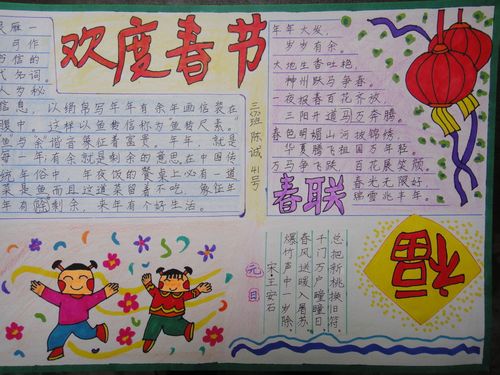 欢度春节
灵雁一
可作
写信的
代名词。
人岁秘
信息，以绢帛写年年有余年画信装在
眼中。这样以鱼转信称为"鱼转尺素。"
鱼与余谐音象征着富贵。年年，就是
每一年有余就是剩余的意思在中国传
统年俗中，年夜饭的餐桌上必有一道
菜是鱼而且这道菜留着不吃，象征年
年有除剩余，来年有个好生活。
三(5)班 陈诚 41号
年年大发，
岁岁有余。
大地生香吐艳，
神州跃马争春。
一夜报春百花齐放，
三阳开道马万奔腾。
春色明媚山河披锦绣，
华夏腾飞祖国万年轻。
万马争飞跃，百花展笑颜。
春光无限好，
瑞雪兆丰年。
春联
元日
宋·王安石
爆竹声中一岁除，
春风送暖入屠苏。
千门万户曈曈日，
总把新桃换旧符。
福